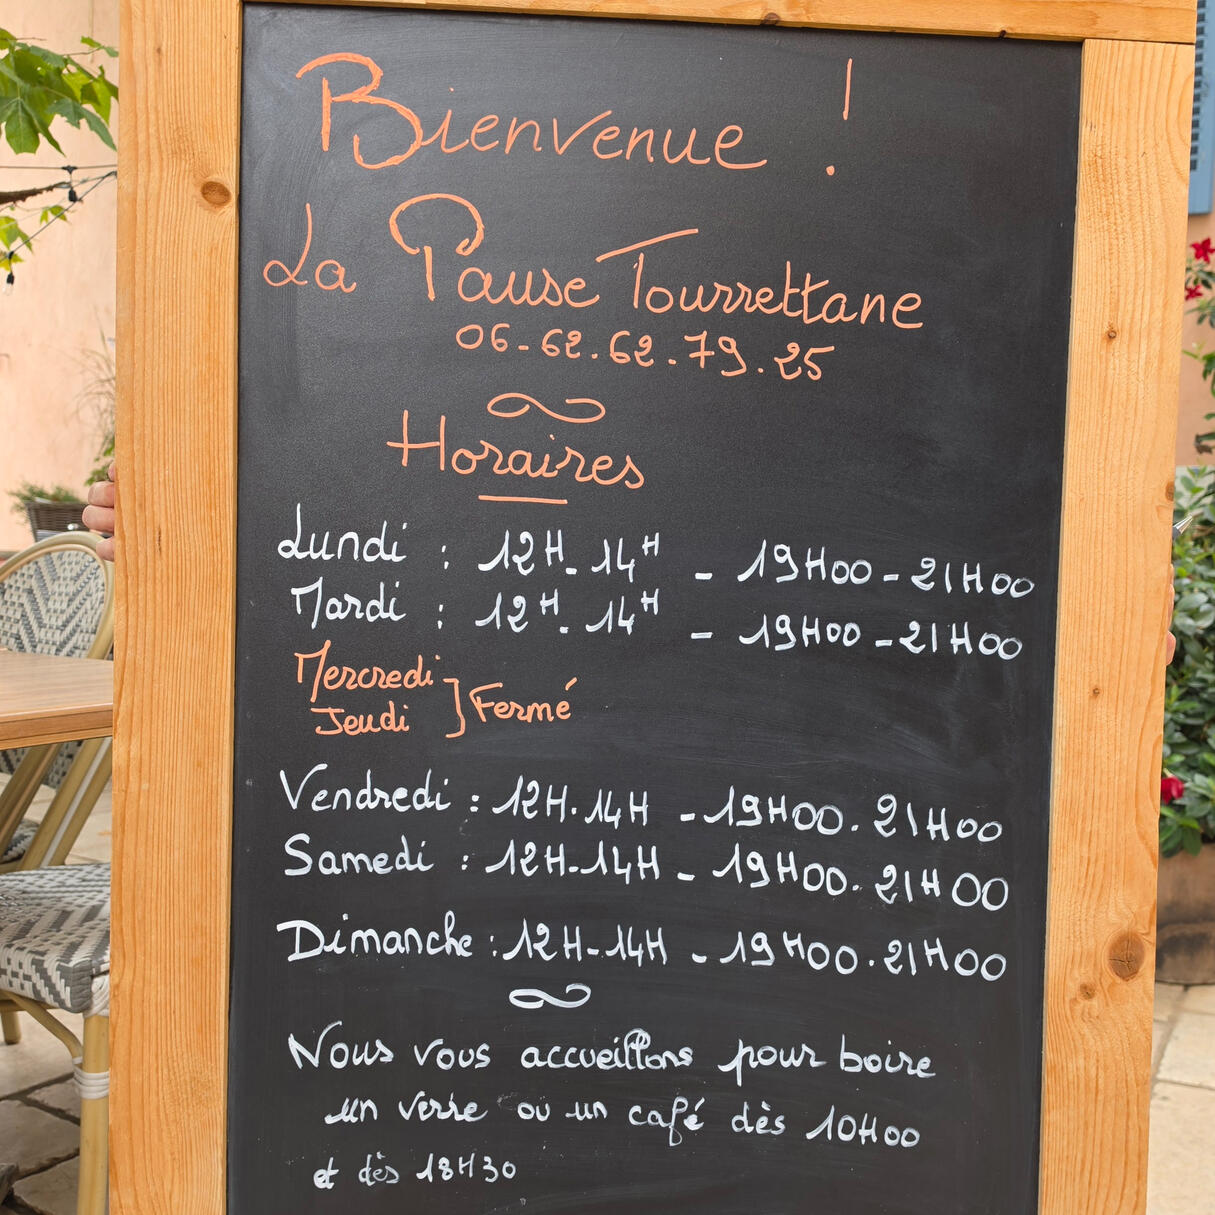 Bienvenue !
La Pause Tourrettane
06-62.62-79.25
Horaires
Lundi : 12H-14H - 19H00-21H00
Mardi : 12H-14H - 19H00-21H00
Mercredi
Jeudi ] Fermé
Vendredi : 12H.14H - 19H00.21H00
Samedi : 12H-14H - 19H00.21H00
Dimanche : 12H-14H - 19H00.21H00
Nous vous accueillons pour boire
un verre ou un café dès 10H00
et dès 18H30